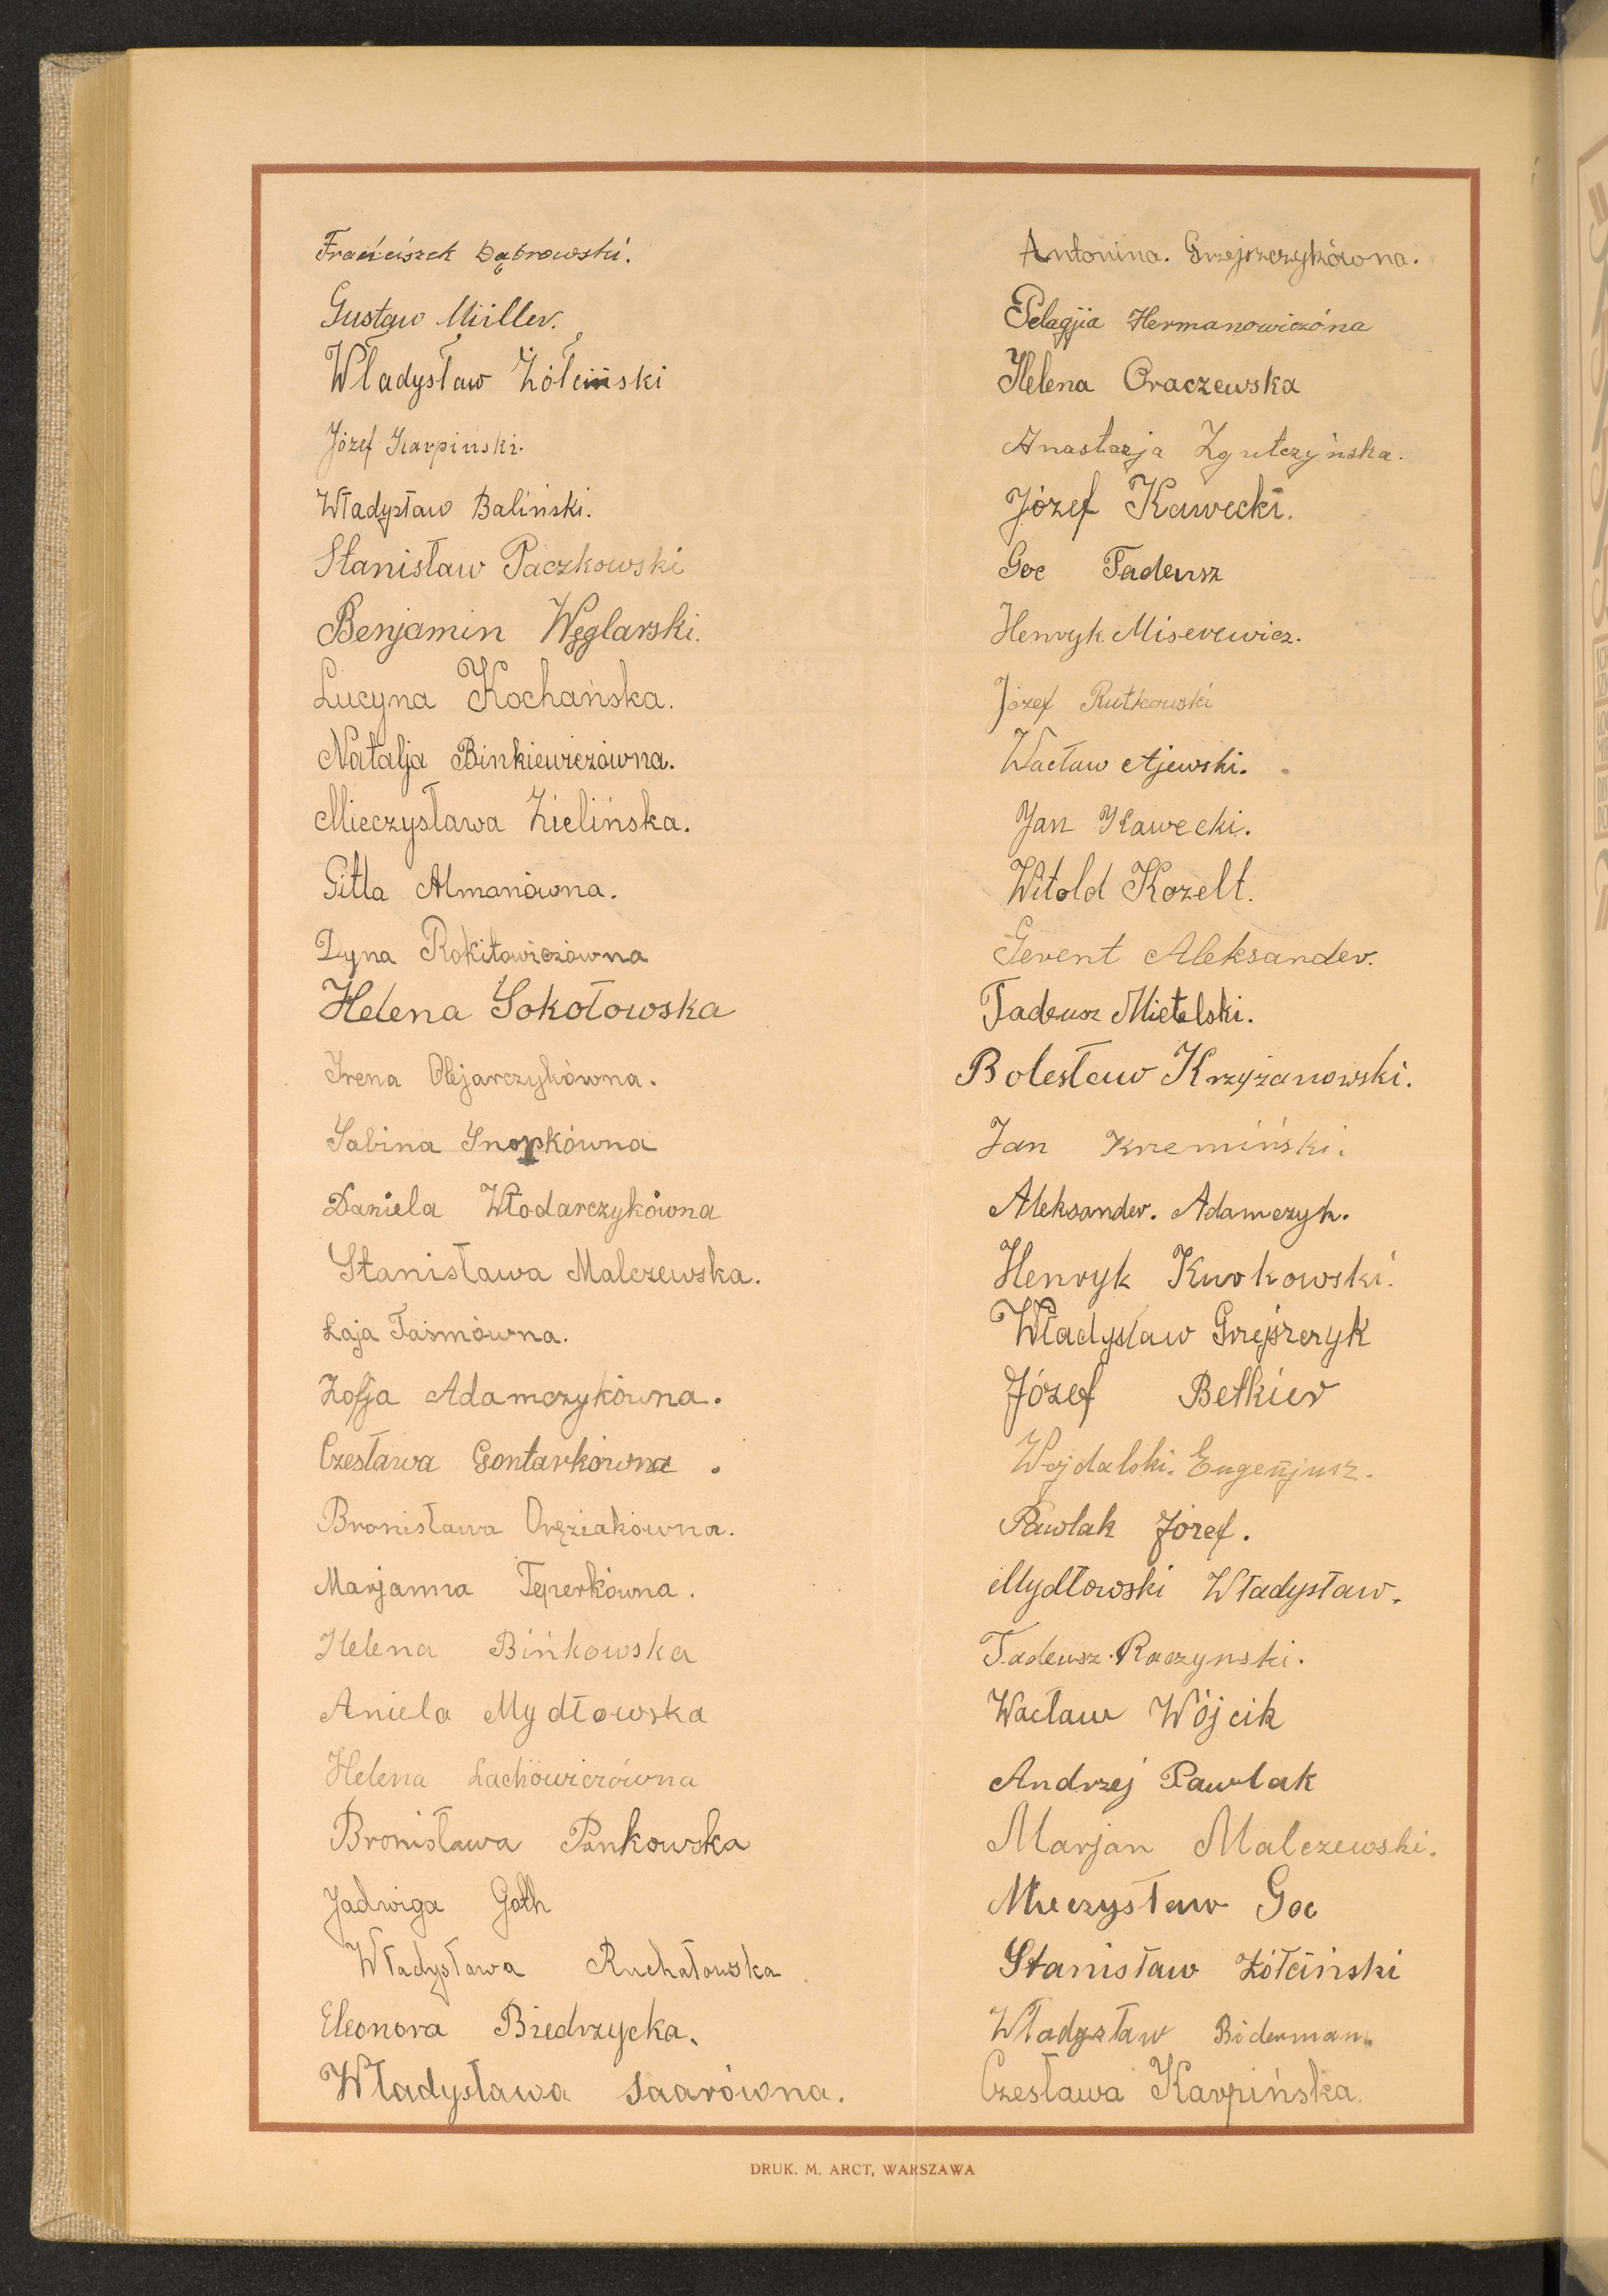 Franciszek Dąbrowski.
Gustaw Müller.
Władysław Żółciński
Józef Karpinski.
Władysław Baliński.
Stanisław Paczkowski
Benjamin Węglarski.
Lucyna Kochańska.
Natalja Binkiewiczówna.
Mieczysława Zielińska.
Gitla Almanówna.
Dyna Rokitowiczówna
Helena Sokołowska
Irena Olejarczykówna.
Sabina Snopkówna
Daniela Włodarczykówna
Stanisława Malczewska.
Łaja Taśmówna.
Zofja Adamczykówna.
Czesława Gontarkówna.
Bronisława Oręziakówna.
Marjanna Teperkówna.
Helena Bińkowska
Aniela Mydłowska
Helena Lachowiczówna
Bronisława Pankowska
Jadwiga Goth
Władysława Ruchałowska
Eleonora Biedrzycka.
Władysława Saarówna.
Antonina. Grzejszczykówna.
Pelagjia Hermanowiczóna
Helena Oraczewska
Anastazja Zgutczyńska.
Józef Kawecki.
Goc Tadeusz
Henryk Miserewicz.
Józef Rutkowski
Wacław Ajewski.
Jan Kawecki.
Witold Kozelt.
Gerent Aleksander.
Tadeusz Mietelski.
Bolesław Krzyżanowski.
Jan Krzemiński.
Aleksander. Adamczyk.
Henryk Kurkowski.
Władysław Grzejszczyk
Józef Betkier
Wojdalski. Eugenjusz.
Pawlak Józef.
Mydłowski Władysław.
Tadeusz. Raczynski.
Wacław Wójcik
Andrzej Pawlak
Marjan Malczewski.
Mieczysław Goc
Stanisław Żółciński
Władysław Biderman.
Czesława Karpińska.
DRUK. M. ARCT, WARSZAWA